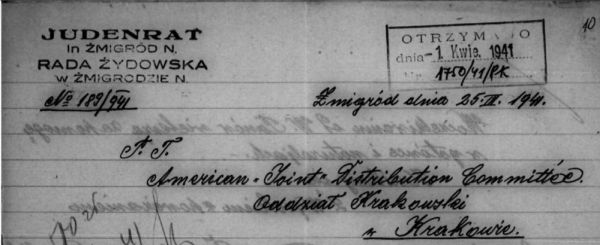 JUDENRAT
in ŻMIGRÓD N.
RADA ŻYDOWSKA
W ŻMIGRODZIE N.
No 189/941
OTRZYMANO
dnia -1. Kwie. 1941
1750/41/PK
40
Żmigród dnia 25.III.1941.
P. T.
American "Joint" Distribution Committee.
Oddział Krakowski
w Krakowie.